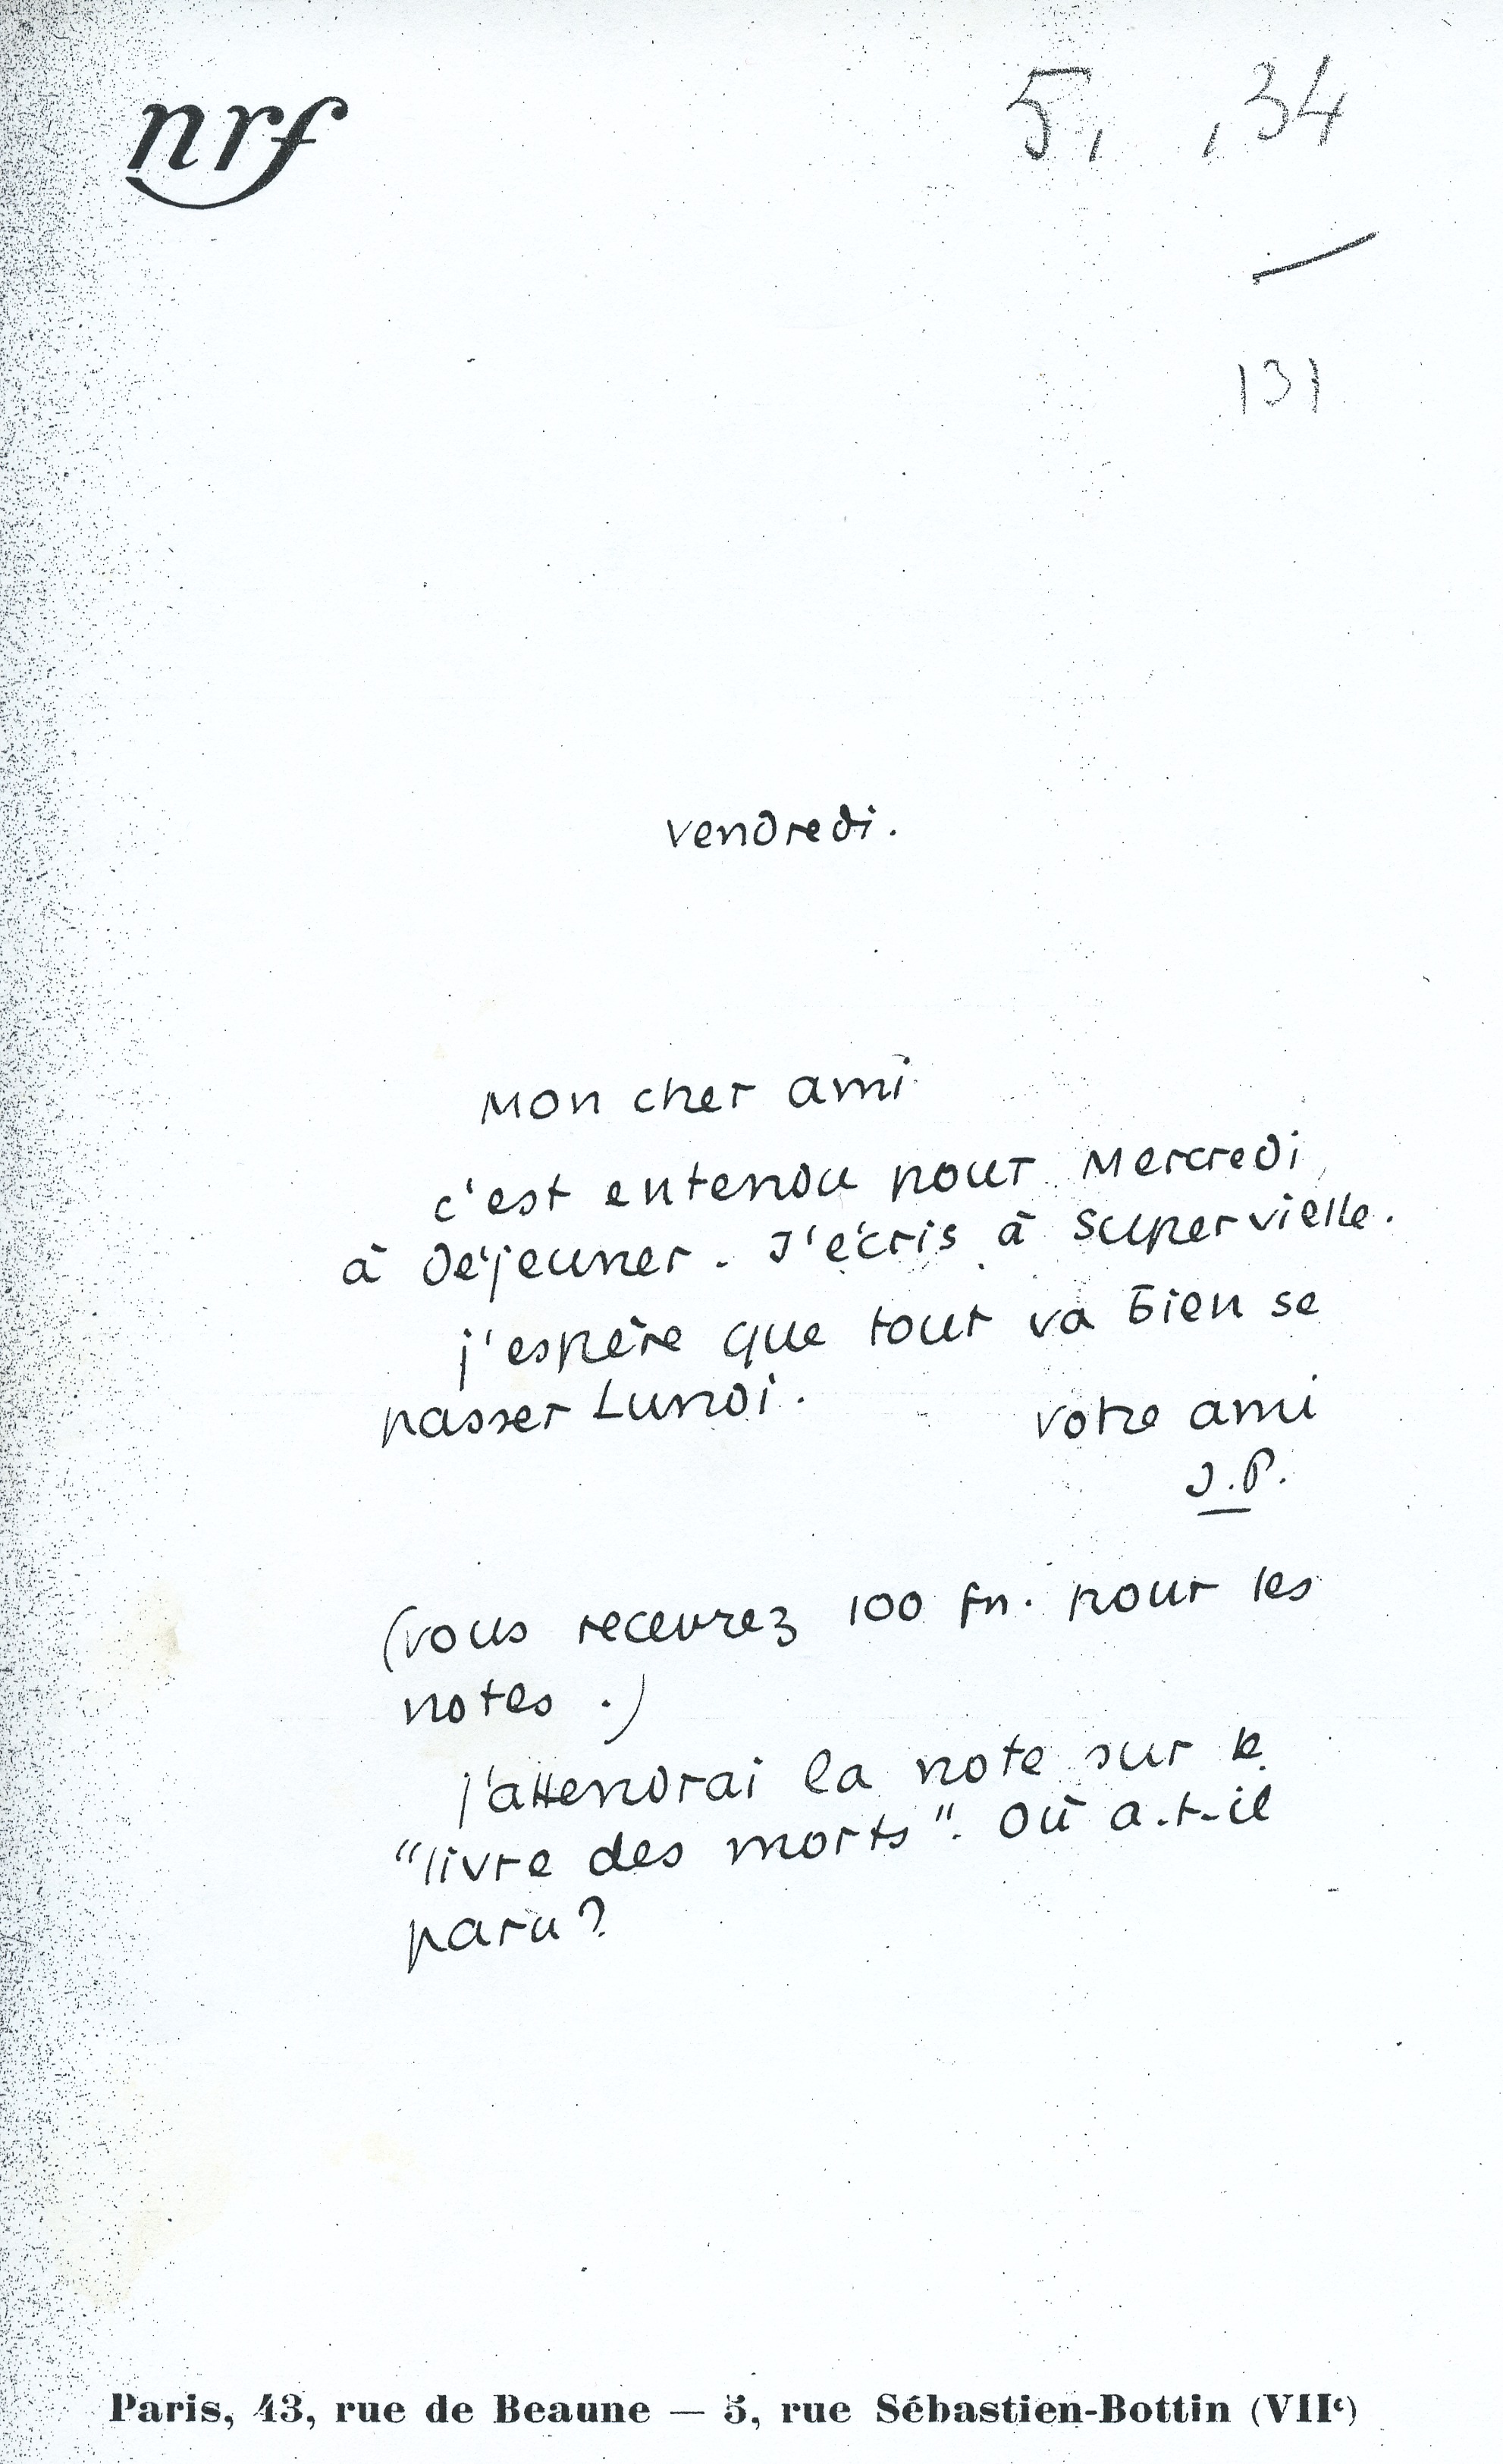 nrf
5, ,34
131
vendredi.
Mon cher ami
c'est entendu pour Mercredi,
à déjeuner. J'écris à Supervielle.
j'espère que tout va bien se
passer Lundi.
votre ami
J.P.
(vous recevrez 100 fr. pour les
notes.)
j'attendrai la note sur le
"livre des morts". Où a-t-il
paru?
Paris, 43, rue de Beaune — 5, rue Sébastien-Bottin (VIIᵉ)